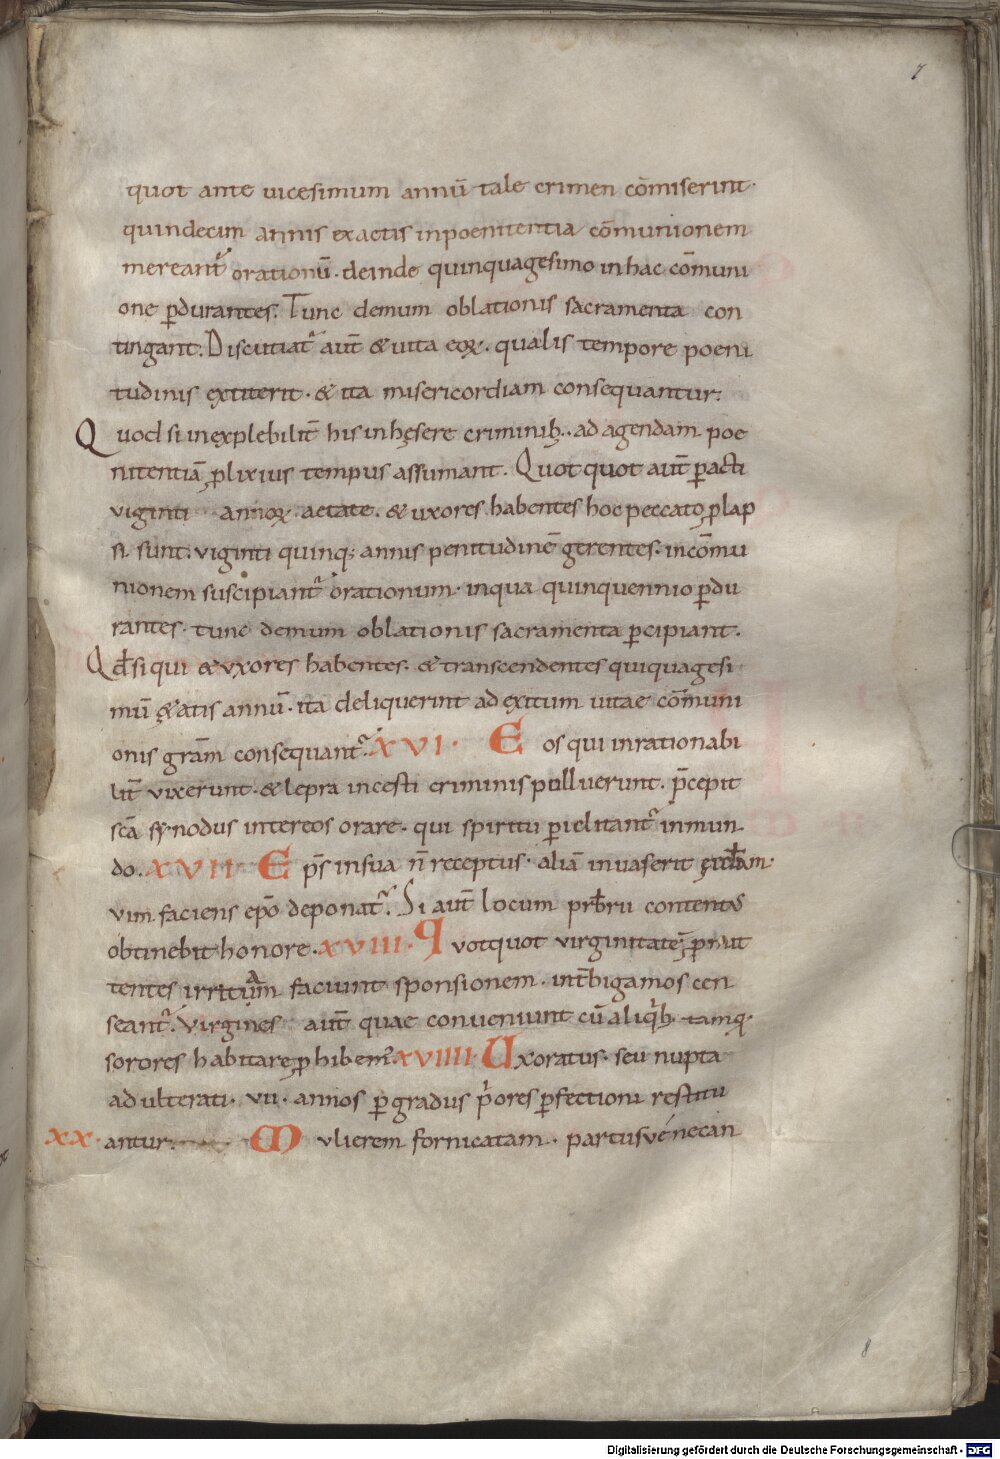 7
quot ante uicesimum annū tale crimen cōmiserint·
quindecim annis exactis inpoenitentia cōmunionem
mereant᷑ orationū· deinde quinquagesimo inhac cōmuni
one ꝑdurantes. Tunc demum oblationis sacramenta con
tingant̄. Discutiat᷑ aut̄ & uita eoꝝ. qualis tempore poeni
tudinis extiterit· & ita misericordiam consequantur:
Quod si inexplebilit̄ his inhęsere criminib;. ad agendam poe
nitentiā ꝓlixius tempus assumant. Quot quot aut̄ ꝑacti
viginti annoꝝ aetate. & uxores habentes hoc peccato ꝓlap
si sunt. viginti quinq; annis penitudinē gerentes. incōmu
nionem suscipiant᷑ orationum· inqua quinquennio ꝑdu
rantes· tunc demum oblationis sacramenta ꝑcipiant.
Qđ si qui & vxores habentes. & transcendentes quiquagesi
mū & atis annū· ita deliquerint ad exitum uitae cōmuni
onis grām consequant᷑. XVI· Eos qui inrationabi
lit̄ vixerunt· & lepra incesti criminis polluerunt. p̄cepit
scā synodus intereos orare· qui spiritu ꝑielitant᷑ inmun
do. XVII Ep̄s insua n̄ receptus· aliā inuaserit ęccłam·
vim faciens ep̄o deponat᷑. Si aut̄ locum prb̄rii contentus
obtinebit honore· XVIII· Quotquot virginitatē ꝓmit
tentes irritam faciunt sponsionem· int̄ bigamos cen
seant᷑. Virgines aut̄ quae conveniunt cū aliqb; tamq·
sorores habitare ꝓhibem᷒. XVIIII· Uxoratus· seu nupta
adulterati· vii· annos ꝑ gradus p̄ores ꝑfectioni restitu
XX· antur. Mulierem fornicatam· partusvé necan
8
Digitalisierung gefördert durch die Deutsche Forschungsgemeinschaft - DFG